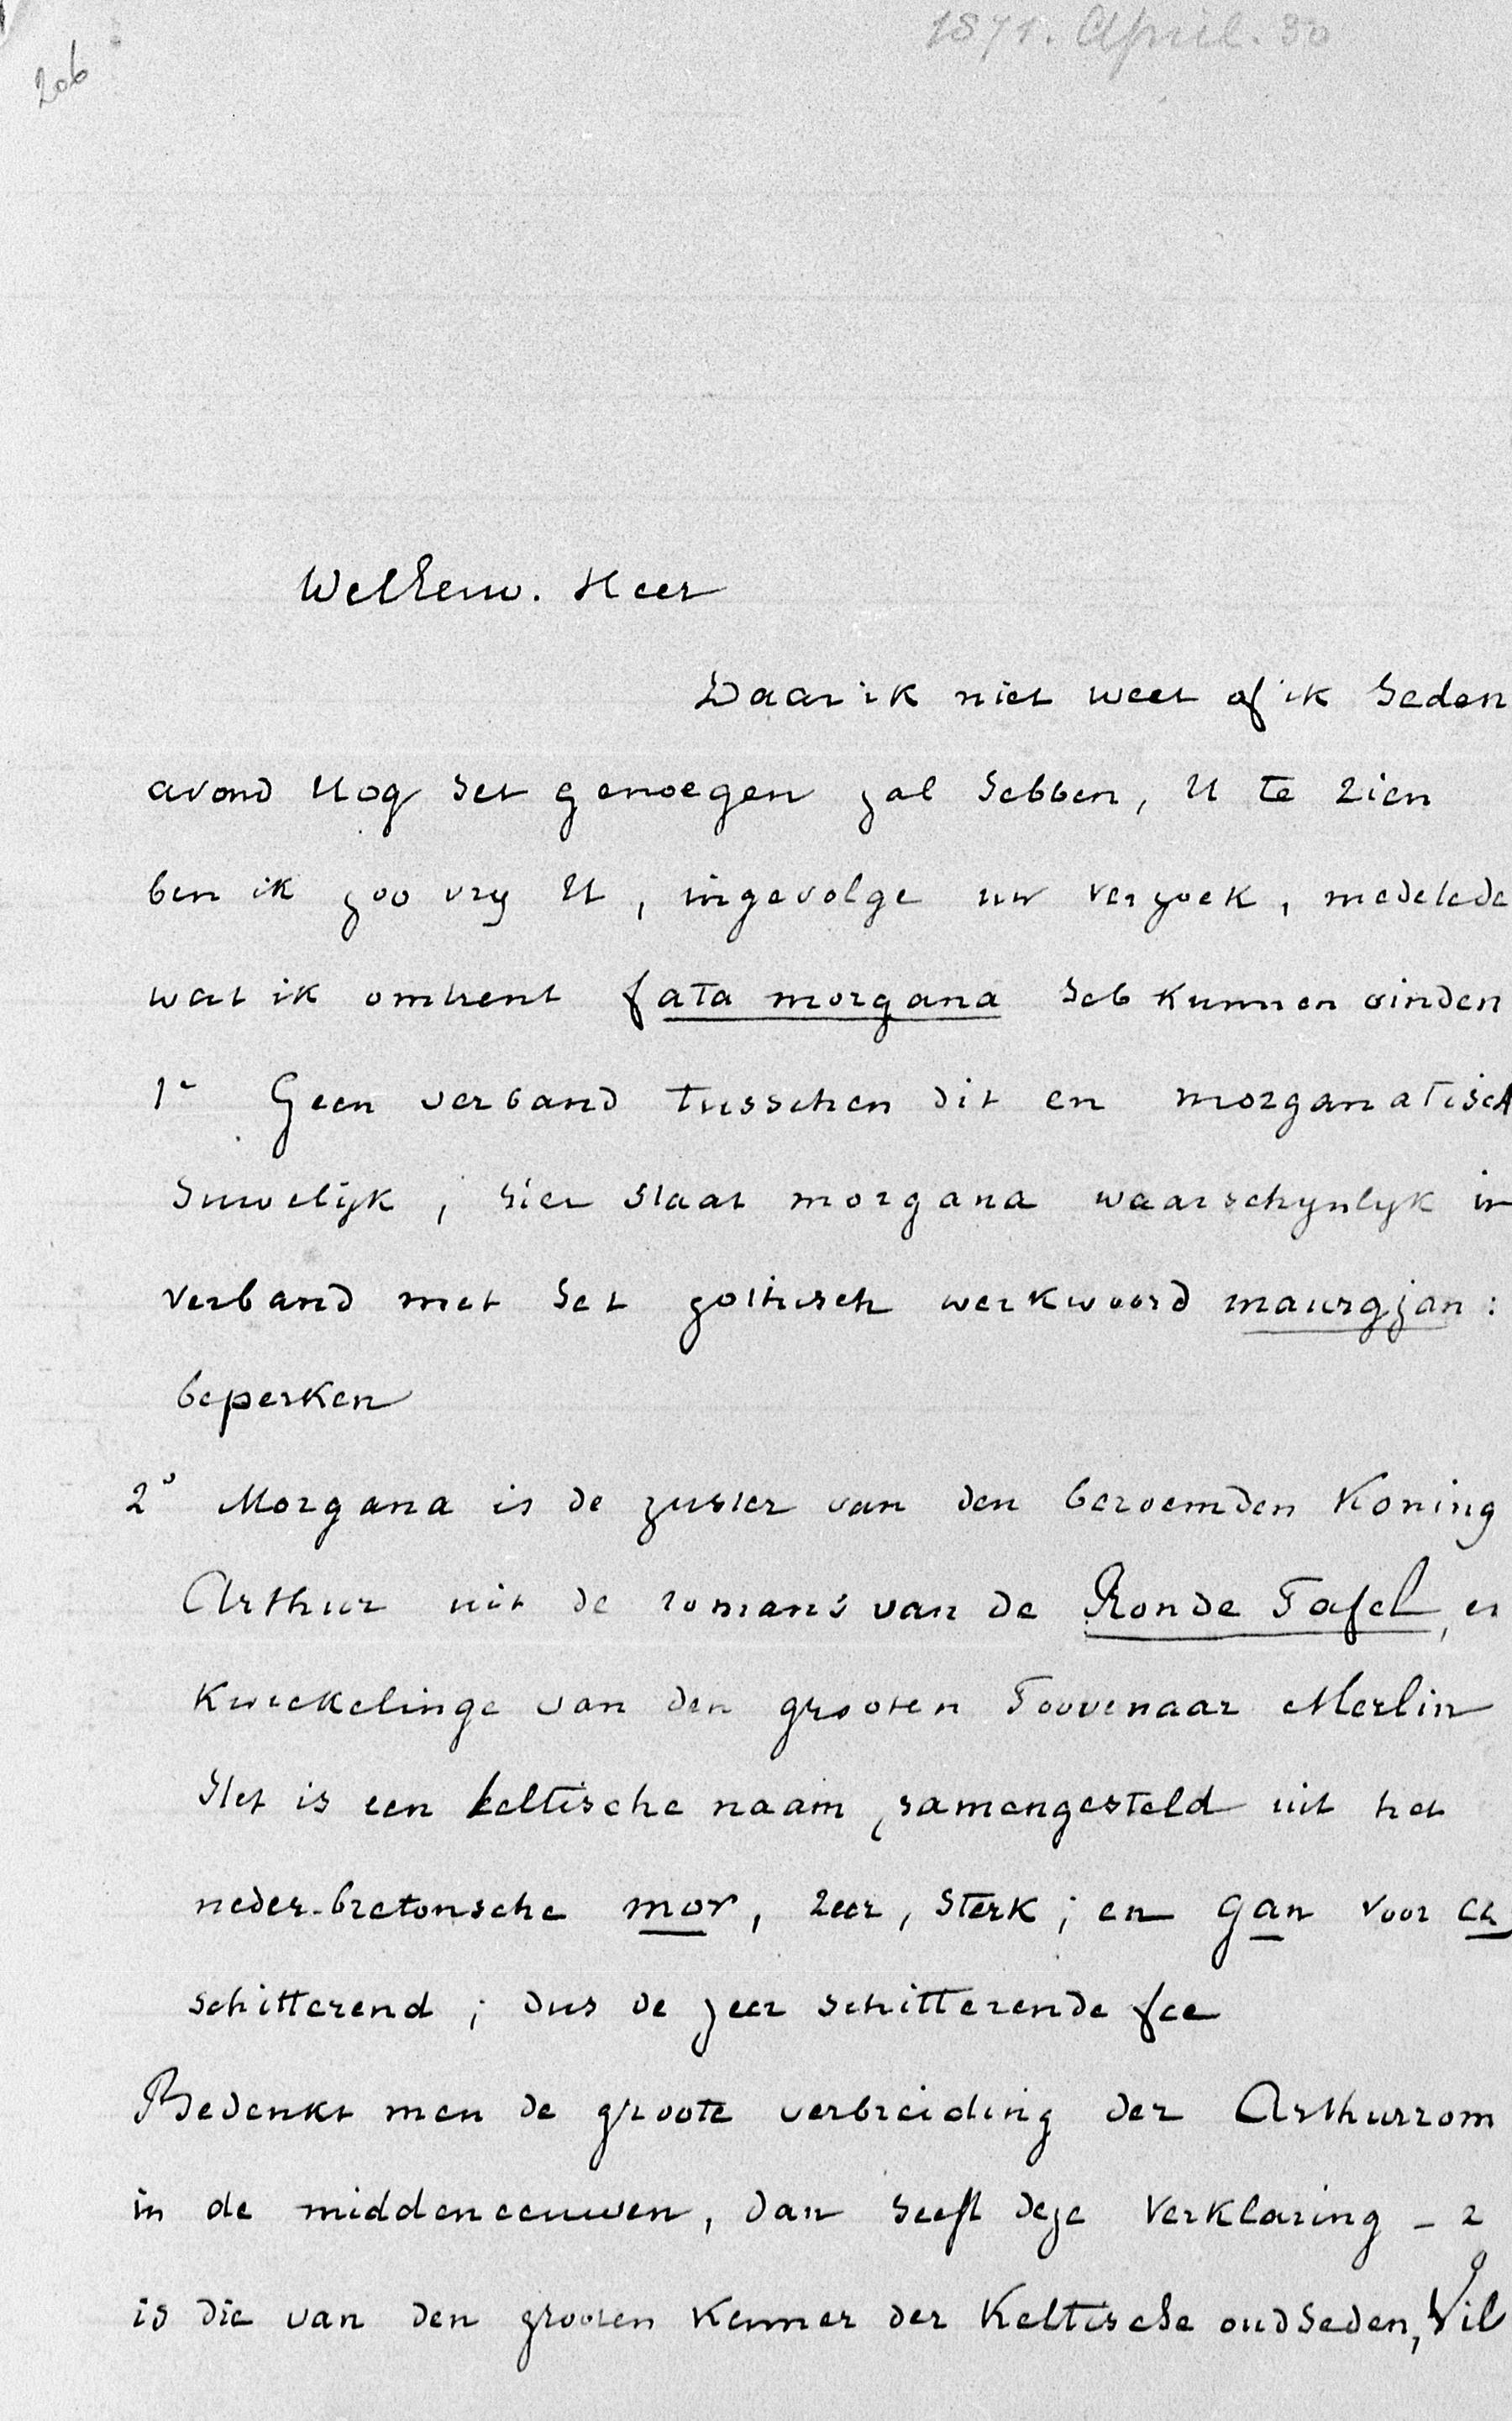 1871. April. 30
206
WelEerw. Heer
Daar ik niet weet of ik heden
avond Uog het genoegen zal hebben, U te zien
ben ik zoo vry U, ingevolge uw verzoek, medelede
wat ik omtrent fata morgana heb kunnen vinden
1e Geen verband tusschen dit en morganatisch
huwelijk; hier staat morgana waarschynlyk in
verband met het gothisch werkwoord maurgjan:
beperken
2o Morgana is de zuster van den beroemden Koning
Arthur uit de romans van de Ronde Tafel, en
Kweekelinge van den grooten Toovenaar Merlin
Het is een keltische naam, samengesteld uit het
neder-bretonsche mor, zeer, sterk; en gan voor
schitterend; dus de zeer schitterende fee
Bedenkt men de groote verbreiding der Arthurrom
in de middeneeuwen, dan heeft deze verklaring -
is die van den grooten Kenner der Keltische oudheden, Vil